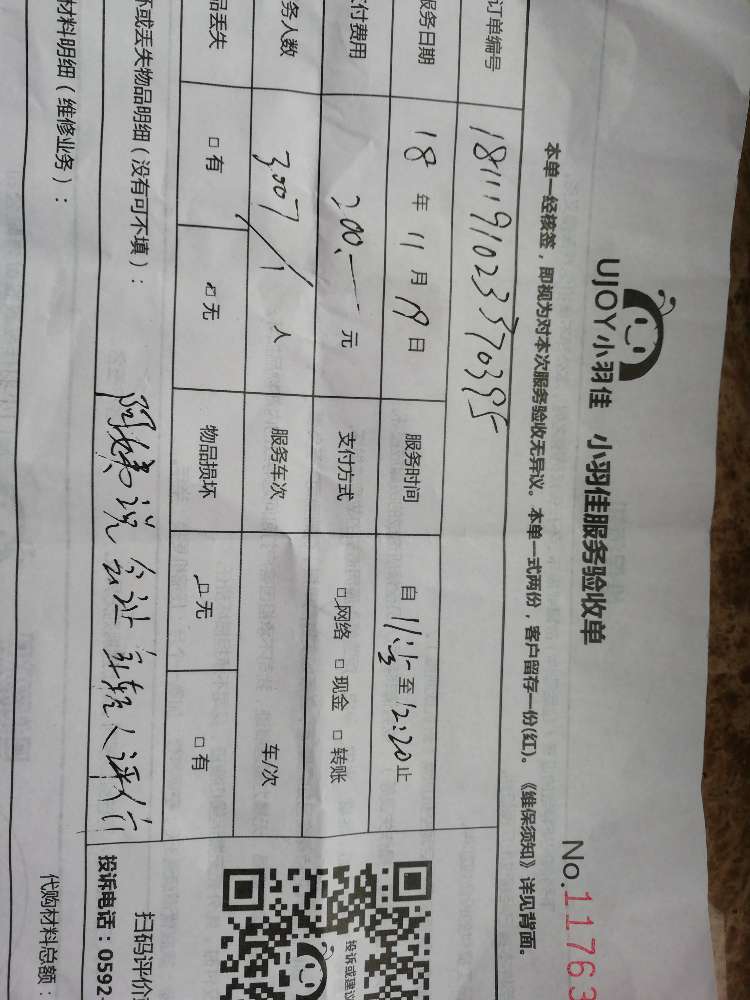 UJOY小羽佳 小羽佳服务验收单
No.11763
本单一经核签，即视为对本次服务验收无异议。本单一式两份，客户留存一份(红)。《维保须知》详见背面。
订单编号 1811191023370395
服务日期 18 年 11 月 19 日 服务时间 自 11:15 至 12:20 止
付费用 200.— 元 支付方式 □网络 □现金 □转账
务人数 人 服务车次 车/次
品丢失 □有 □无 物品损坏 □无 □有
坏或丢失物品明细（没有可不填）：
阿姨说会让年轻人评价
材料明细（维修业务）：
投诉或建议
UJOY
扫码评价
投诉电话：0592
代购材料总额：